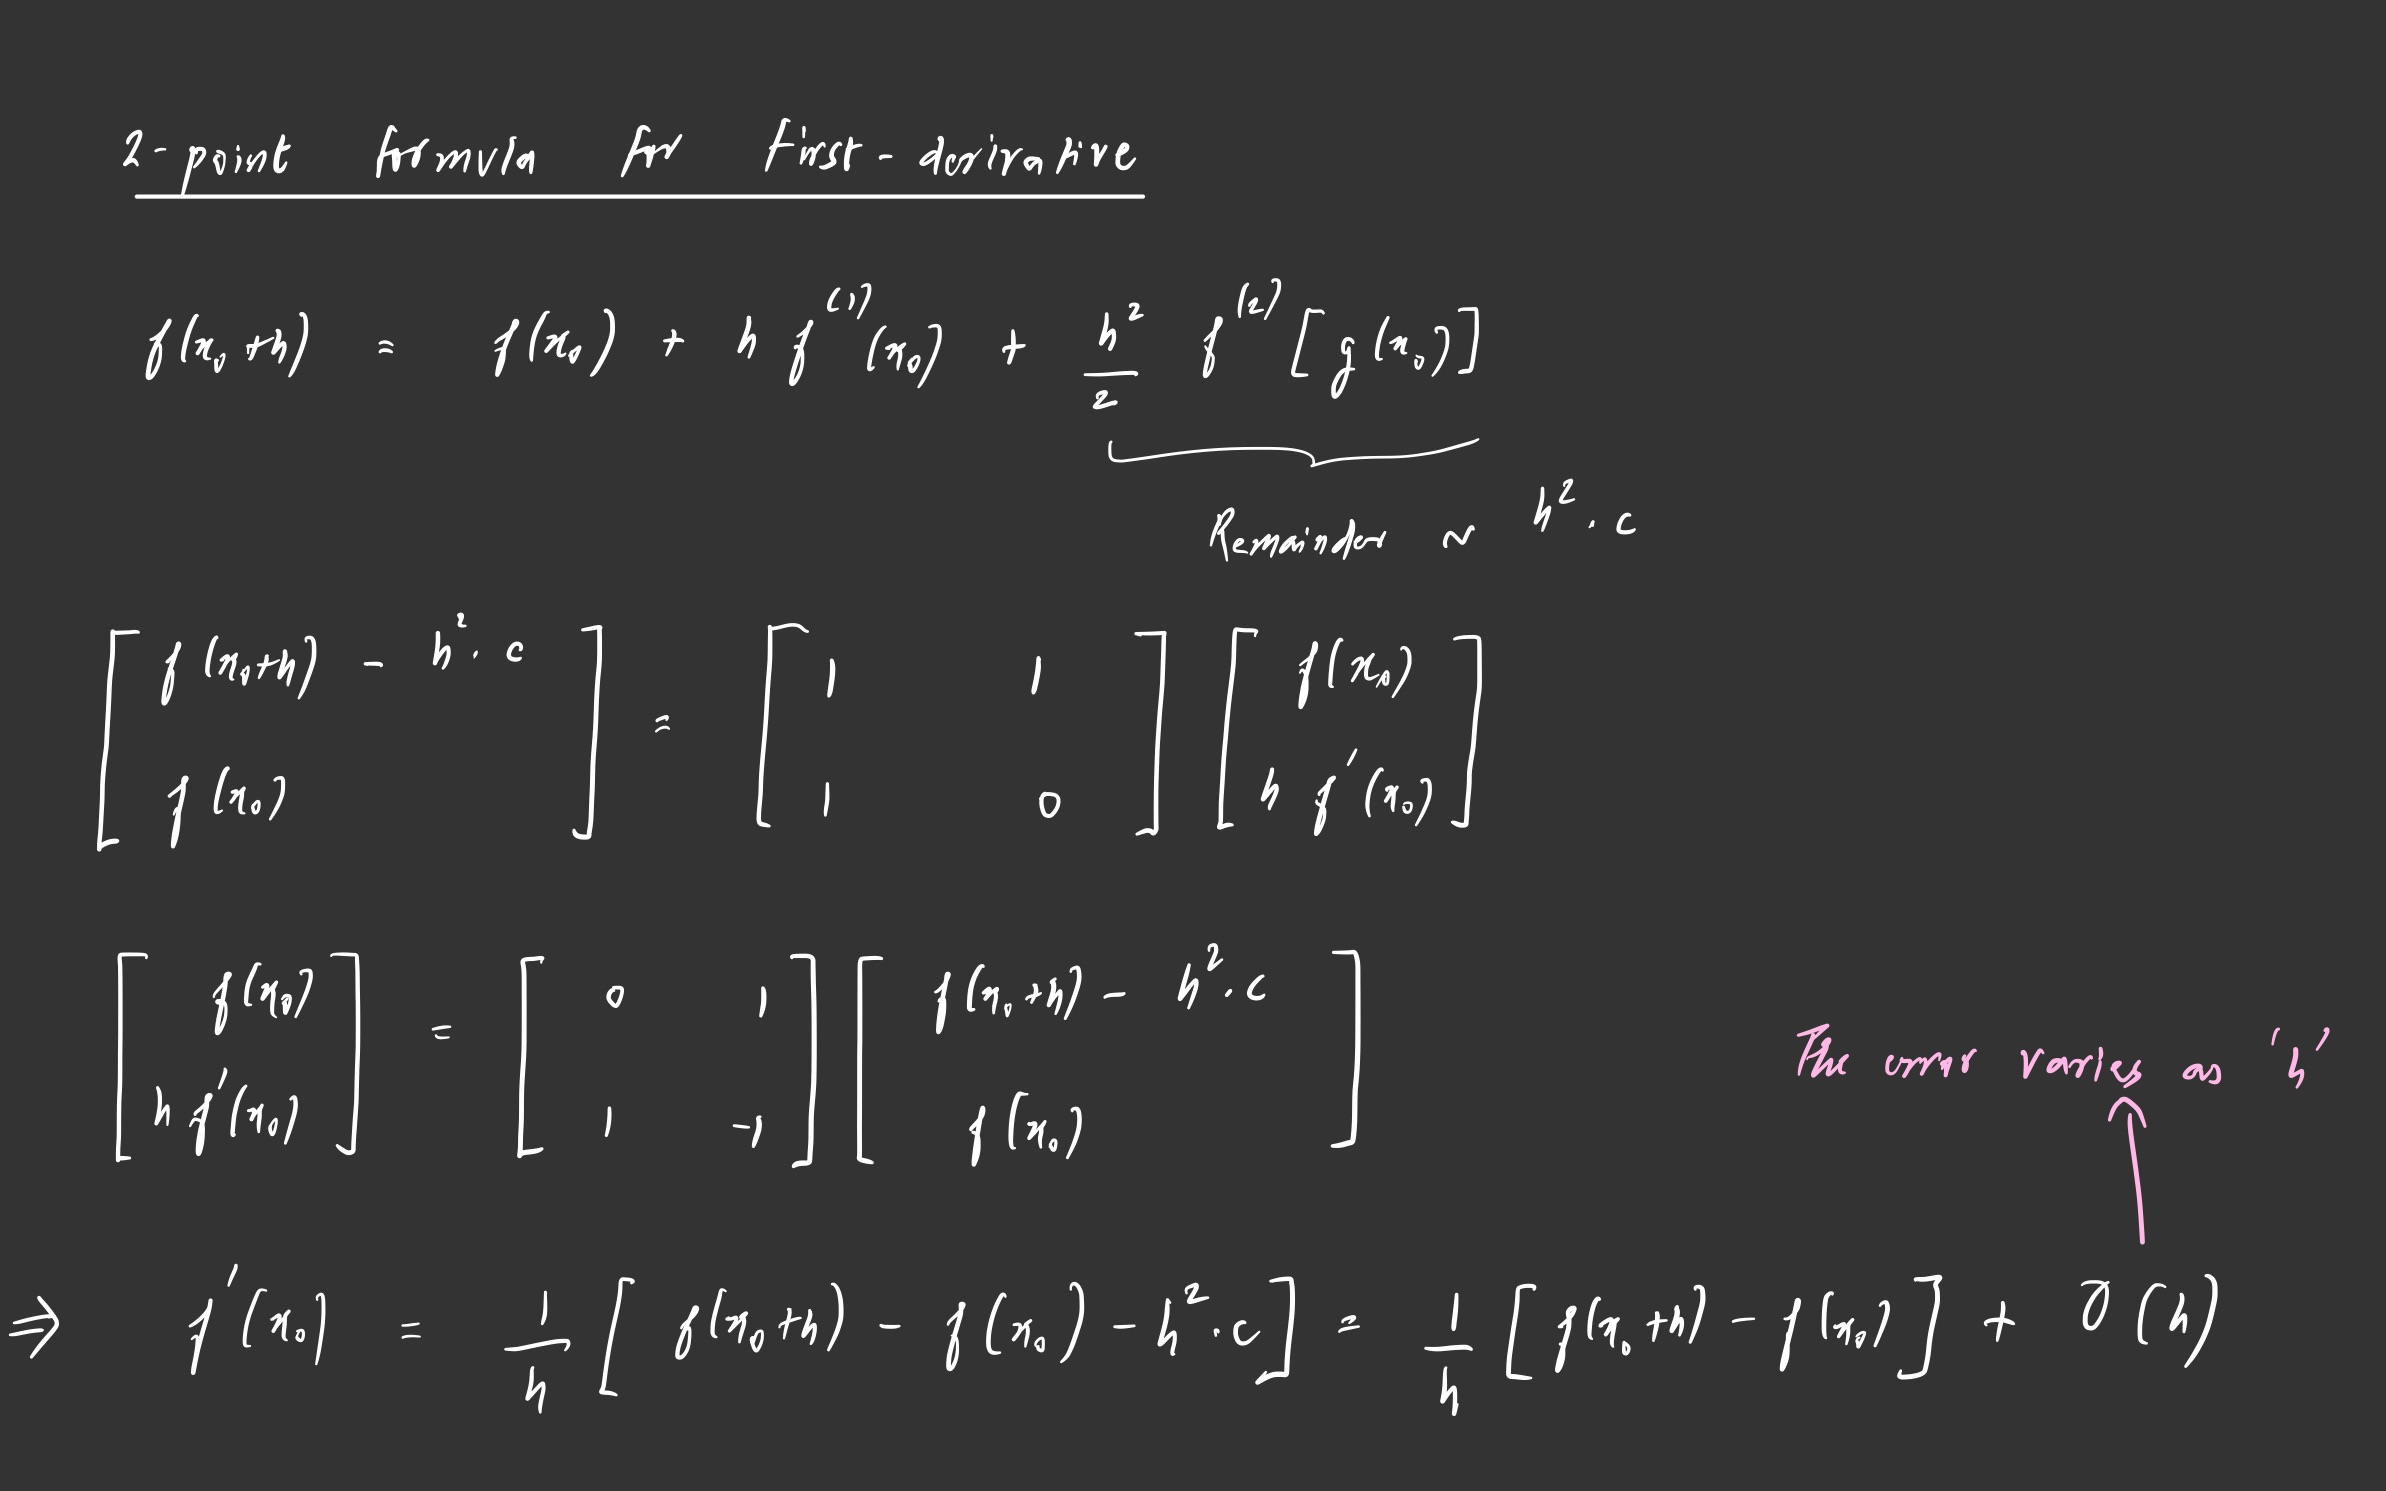 2-point formula for first-derivative
f(x₀+h) = f(x₀) + h f⁽¹⁾(x₀) + h²/2 f⁽²⁾[g(x₀)]
Remainder ~ h².c
[f(x₀+h) - h².c ; f(x₀)] = [1 1 ; 1 0] [f(x₀) ; h f'(x₀)]
[f(x₀) ; h f'(x₀)] = [0 1 ; 1 -1] [f(x₀+h) - h².c ; f(x₀)]
The error varies as 'h'
⇒ f'(x₀) = 1/h [f(x₀+h) - f(x₀) - h².c] = 1/h [f(x₀+h) - f(x₀)] + O(h)